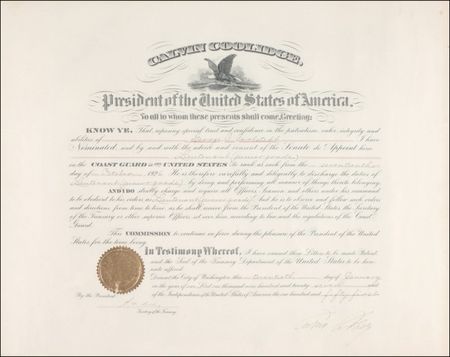 CALVIN COOLIDGE,
President of the United States of America.
To all to whom these presents shall come, Greeting:
KNOW YE, That reposing special trust and confidence in the patriotism, valor, integrity and
abilities of I have
Nominated, and by and with the advice and consent of the Senate do Appoint him
Lieutenant (junior grade)
in the COAST GUARD of the UNITED STATES to rank as such from the seventeenth
day of October 1926. He is therefore carefully and diligently to discharge the duties of
Lieutenant (junior grade) by doing and performing all manner of things thereto belonging.
AND I DO strictly charge and require all Officers, Seamen and others under his command
to be obedient to his orders as Lieutenant (junior grade) And he is to observe and follow such orders
and directions from time to time as he shall receive from the President of the United States, the Secretary
of the Treasury or other superior Officers set over him, according to law and the regulations of the Coast
Guard.
This COMMISSION to continue in force during the pleasure of the President of the United
States for the time being.
In Testimony Whereof, I have caused these Letters to be made Patent
and the Seal of the Treasury Department of the United States to be here-
unto affixed.
Done at the City of Washington this day of January
in the year of our Lord one thousand nine hundred and twenty seven and
of the Independence of the United States of America the one hundred and fifty first
By the President
Secretary of the Treasury.